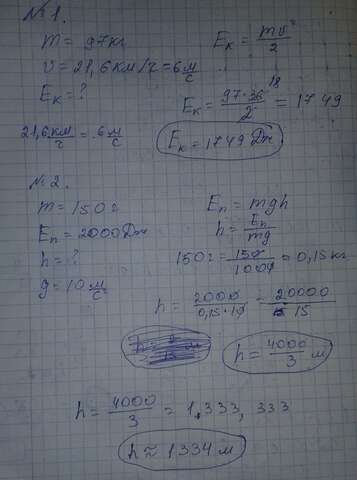 № 1.
m = 97кг
v = 21,6 км/ч = 6 м/с
Eк = ?
21,6 км/ч = 6 м/с
Eк = mv²/2
Eк = 97·36/2 18 = 1749
Eк = 1749 Дж
№ 2.
m = 150 г
Eп = 2000 Дж
h = ?
g = 10 м/с
Eп = mgh
h = Eп/mg
150 г = 150/1000 = 0,15 кг
h = 2000/0,15·10 = 20000/15
h = 4000/3 м
h = 4000/3 = 1,333,333
h ≈ 1334 м